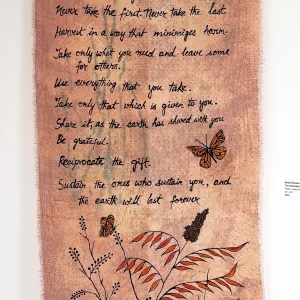 Never take the first. Never take the last.
Harvest in a way that minimizes harm.
Take only what you need and leave some
for others.
Use everything that you take.
Take only that which is given to you.
Share it, as the earth has shared with you
Be grateful.
Reciprocate the gift.
Sustain the ones who sustain you, and
the earth will last forever